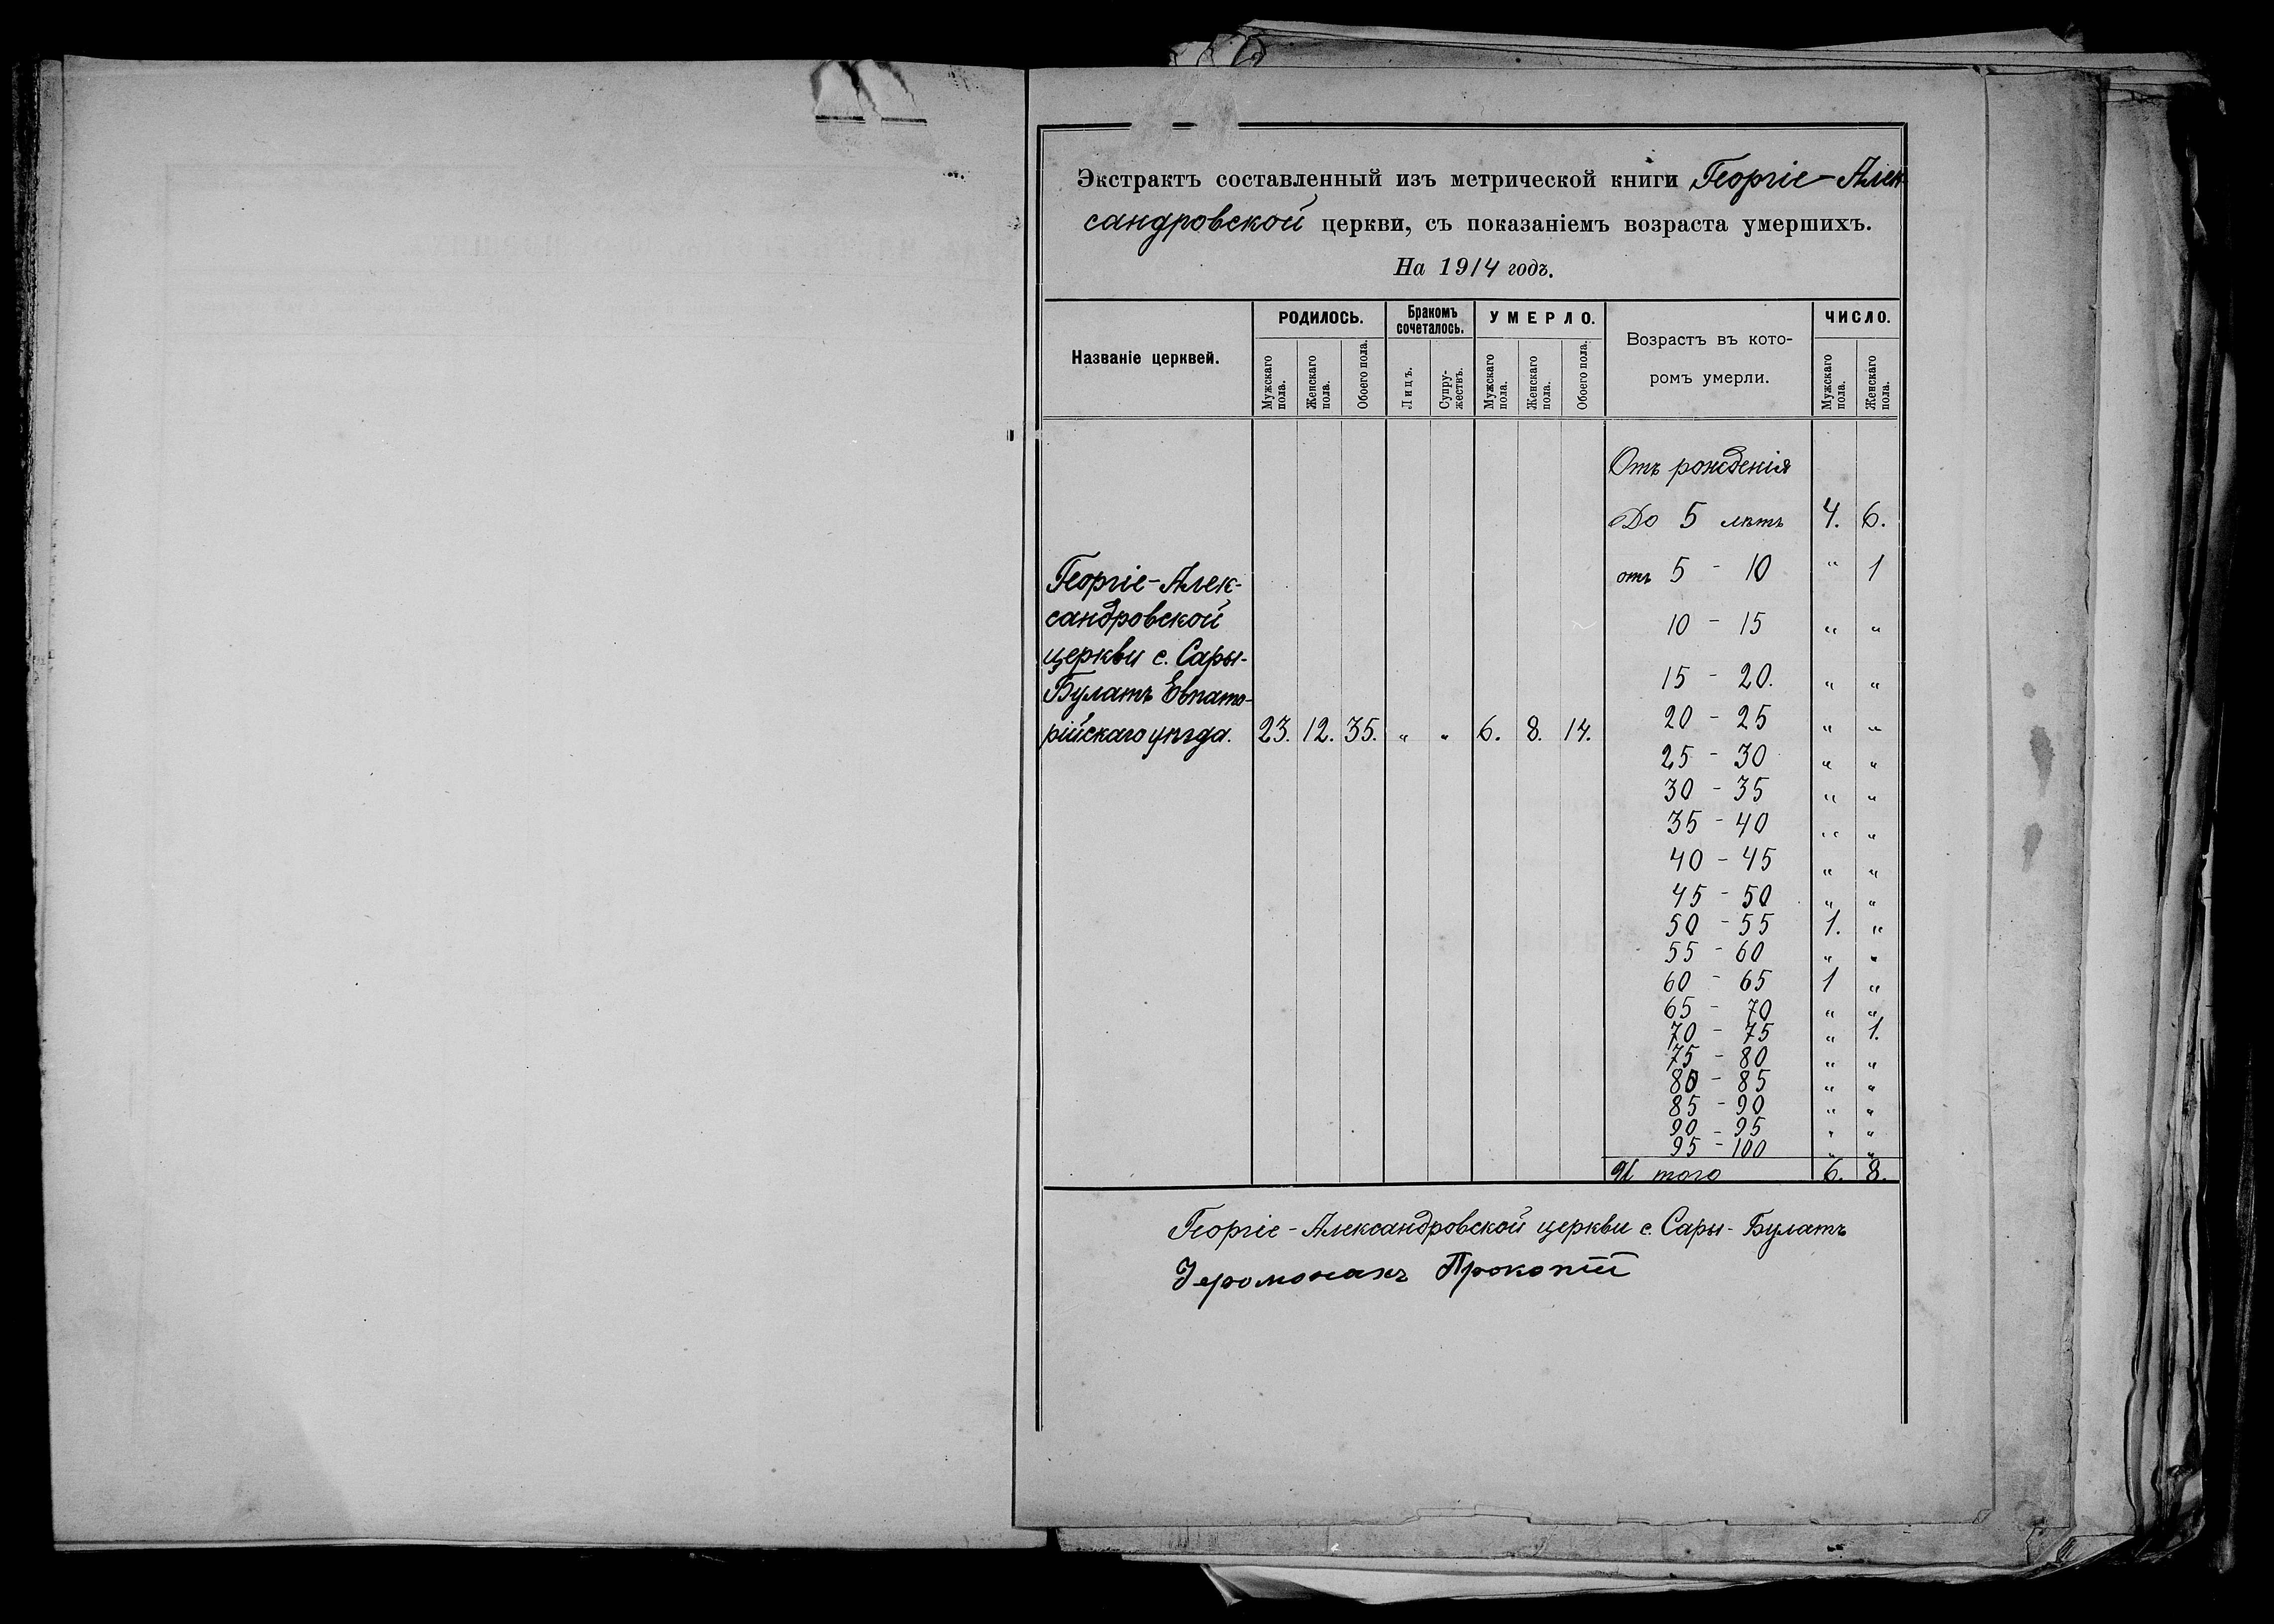 Экстрактъ составленный изъ метрической книги Георгіе-Алек-
сандровской церкви, съ показаніемъ возраста умершихъ.
На 1914 годъ.
Названіе церквей.
РОДИЛОСЬ.
Мужскаго пола.
Женскаго пола.
Обоего пола.
Бракомъ сочеталось.
Лицъ.
Супружествъ.
УМЕРЛО.
Мужскаго пола.
Женскаго пола.
Обоего пола.
Возрастъ въ кото-
ромъ умерли.
ЧИСЛО.
Мужскаго пола.
Женскаго пола.
Георгіе-Алек-
сандровской
церкви с. Сары-
Булатъ Евпато-
рійскаго уѣзда. 23. 12. 35. „ „ 6. 8. 14.
Отъ рожденія
До 5 лѣтъ 4. 6.
отъ 5 - 10 „ 1
10 - 15 „ „
15 - 20. „ „
20 - 25 „ „
25 - 30 „ „
30 - 35 „ „
35 - 40 „ „
40 - 45 „ „
45 - 50 „ „
50 - 55 1. „
55 - 60 „ „
60 - 65 1 „
65 - 70 „ „
70 - 75 „ 1.
75 - 80 „ „
80 - 85 „ „
85 - 90 „ „
90 - 95 „ „
95 - 100 „ „
И того 6. 8.
Георгіе-Александровской церкви с. Сары-Булатъ
Іеромонахъ Прокопій